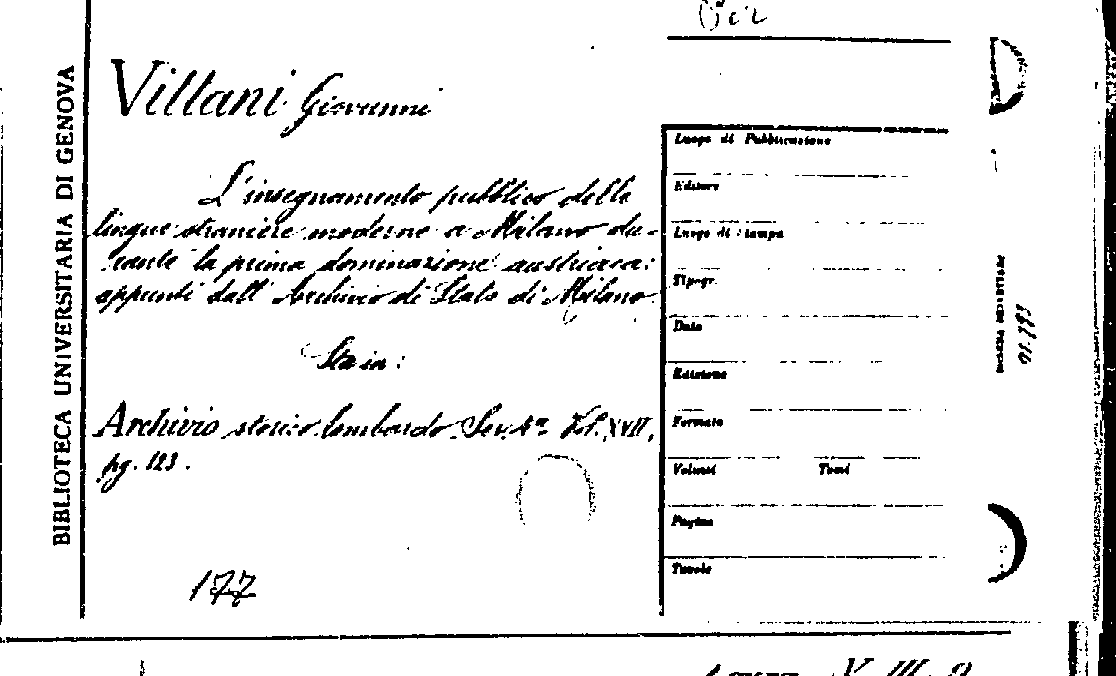 Per
BIBLIOTECA UNIVERSITARIA DI GENOVA
Villani Giovanni
L'insegnamento pubblico delle
lingue straniere moderne a Milano du-
rante la prima dominazione austriaca:
appunti dall'Archivio di Stato di Milano
Sta in:
Archivio storico lombardo. Ser. 4ª Vol. XVII,
pg. 123.
177
Luogo di Pubblicazione
Editore
Luogo di stampa
Tipogr.
Data
Edizione
Formato
Volumi Tomi
Pagine
Tavole